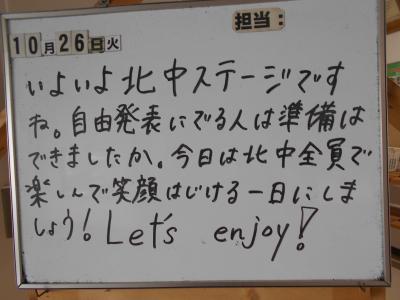 担当：
10月26日火
いよいよ北中ステージです
ね。自由発表にでる人は準備は
できましたか。今日は北中全員で
楽しんで笑顔はじける一日にしま
しょう！Let's enjoy!